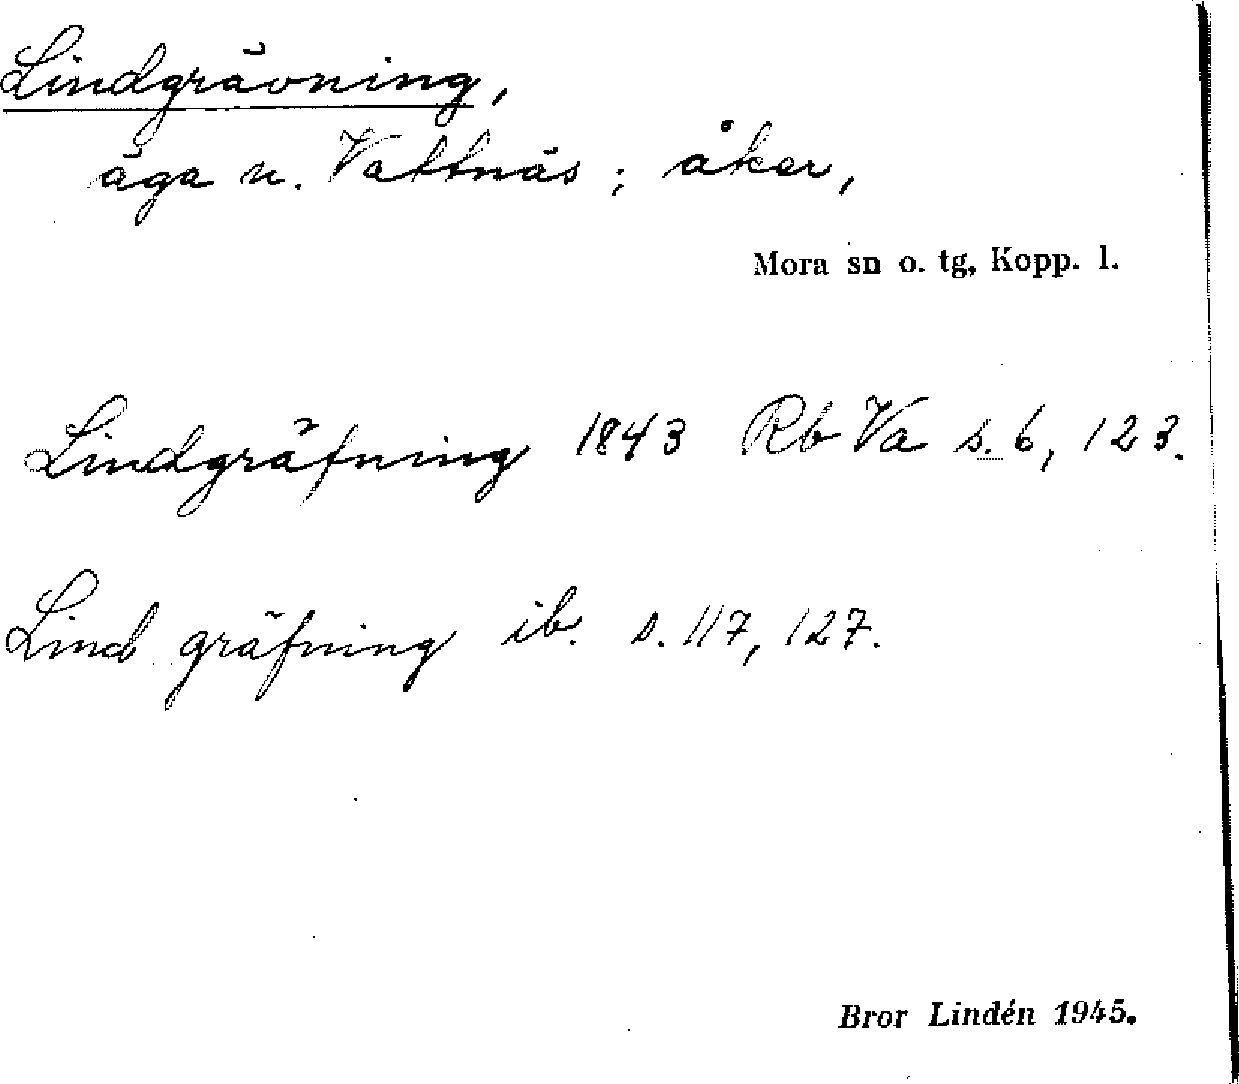 Lindgrävning,
äga u. Vattnäs; åker,
Mora sn o. tg, Kopp. l.
Lindgräfning 1843 Rb Va s. 6, 123.
Lind gräfning ib. s. 117, 127.
Bror Lindén 1945.